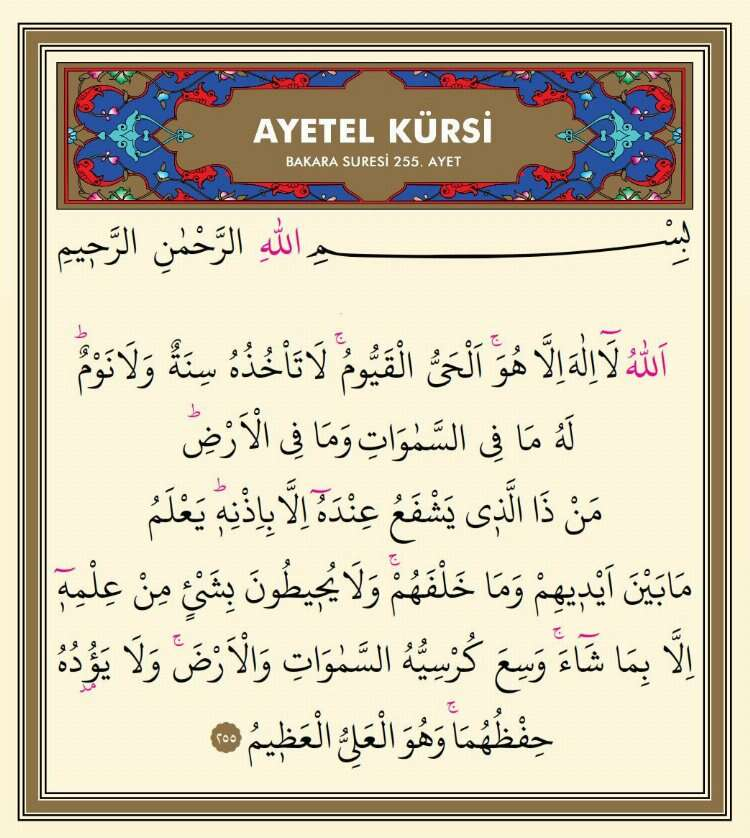 AYETEL KÜRSİ
BAKARA SURESİ 255. AYET
بِسْمِ اللّٰهِ الرَّحْمٰنِ الرَّح۪يمِ
اَللّٰهُ لَٓا اِلٰهَ اِلَّا هُوَۚ اَلْحَيُّ الْقَيُّومُۚ لَا تَأْخُذُهُ سِنَةٌ وَلَا نَوْمٌۜ
لَهُ مَا فِى السَّمٰوَاتِ وَمَا فِى الْاَرْضِۜ
مَنْ ذَا الَّذ۪ى يَشْفَعُ عِنْدَهُٓ اِلَّا بِاِذْنِه۪ۜ يَعْلَمُ
مَا بَيْنَ اَيْد۪يهِمْ وَمَا خَلْفَهُمْۚ وَلَا يُح۪يطُونَ بِشَىْءٍ مِنْ عِلْمِه۪ٓ
اِلَّا بِمَا شَٓاءَۚ وَسِعَ كُرْسِيُّهُ السَّمٰوَاتِ وَالْاَرْضَۚ وَلَا يَؤُ۫دُهُ
حِفْظُهُمَاۚ وَهُوَ الْعَلِىُّ الْعَظ۪يمُ ٢٥٥